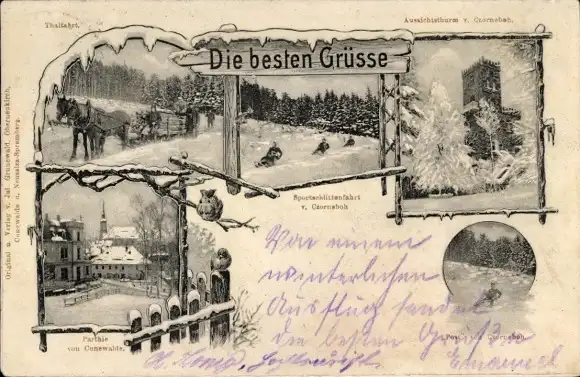 Thalfahrt.
Aussichtsthurm v. Czorneboh.
Die besten Grüsse
Original u. Verlag v. Jul. Grunewald, Oberneukirch,
Cunewalde u. Neusalza-Spremberg.
Sportschlittenfahrt
v. Czorneboh
Parthie
von Cunewalde.
Von einem
winterlichen
Ausflug sendet
die besten Grüße
Emanuel